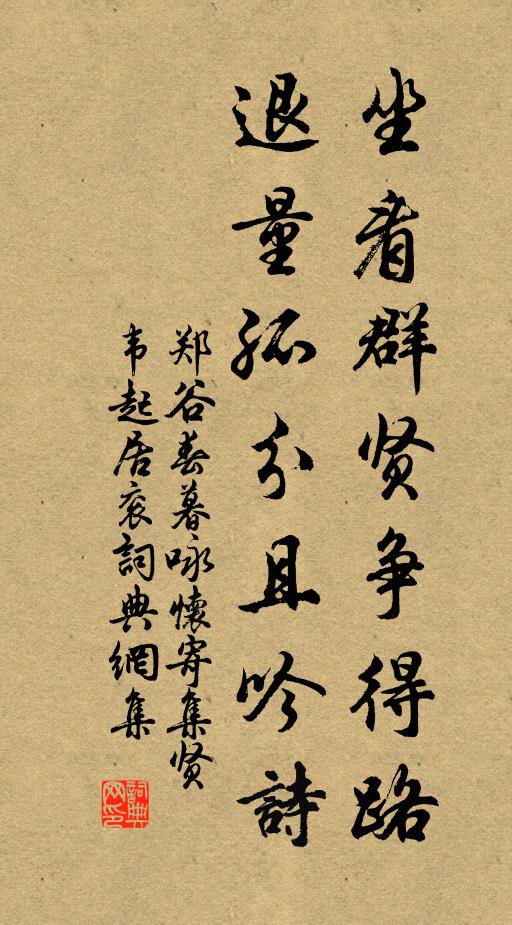 坐看群贤争得路
退量孤分且吟詩
郑谷春暮咏懷寄集贤
韦起居衮詞典網集
詞典网印